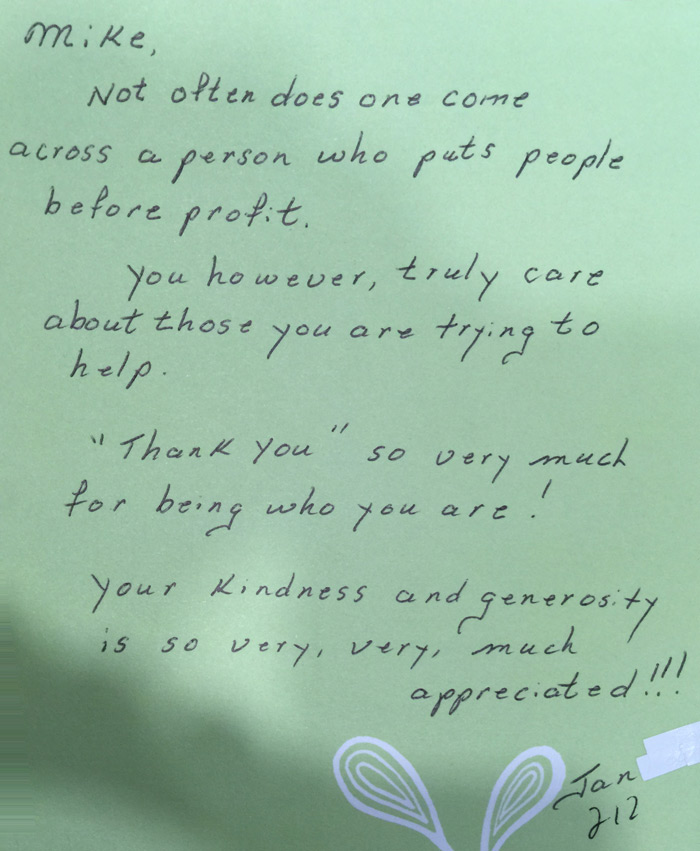 Mike,
Not often does one come
across a person who puts people
before profit.
You however, truly care
about those you are trying to
help.
"Thank You" so very much
for being who you are!
Your kindness and generosity
is so very, very, much
appreciated!!!
Jan
212